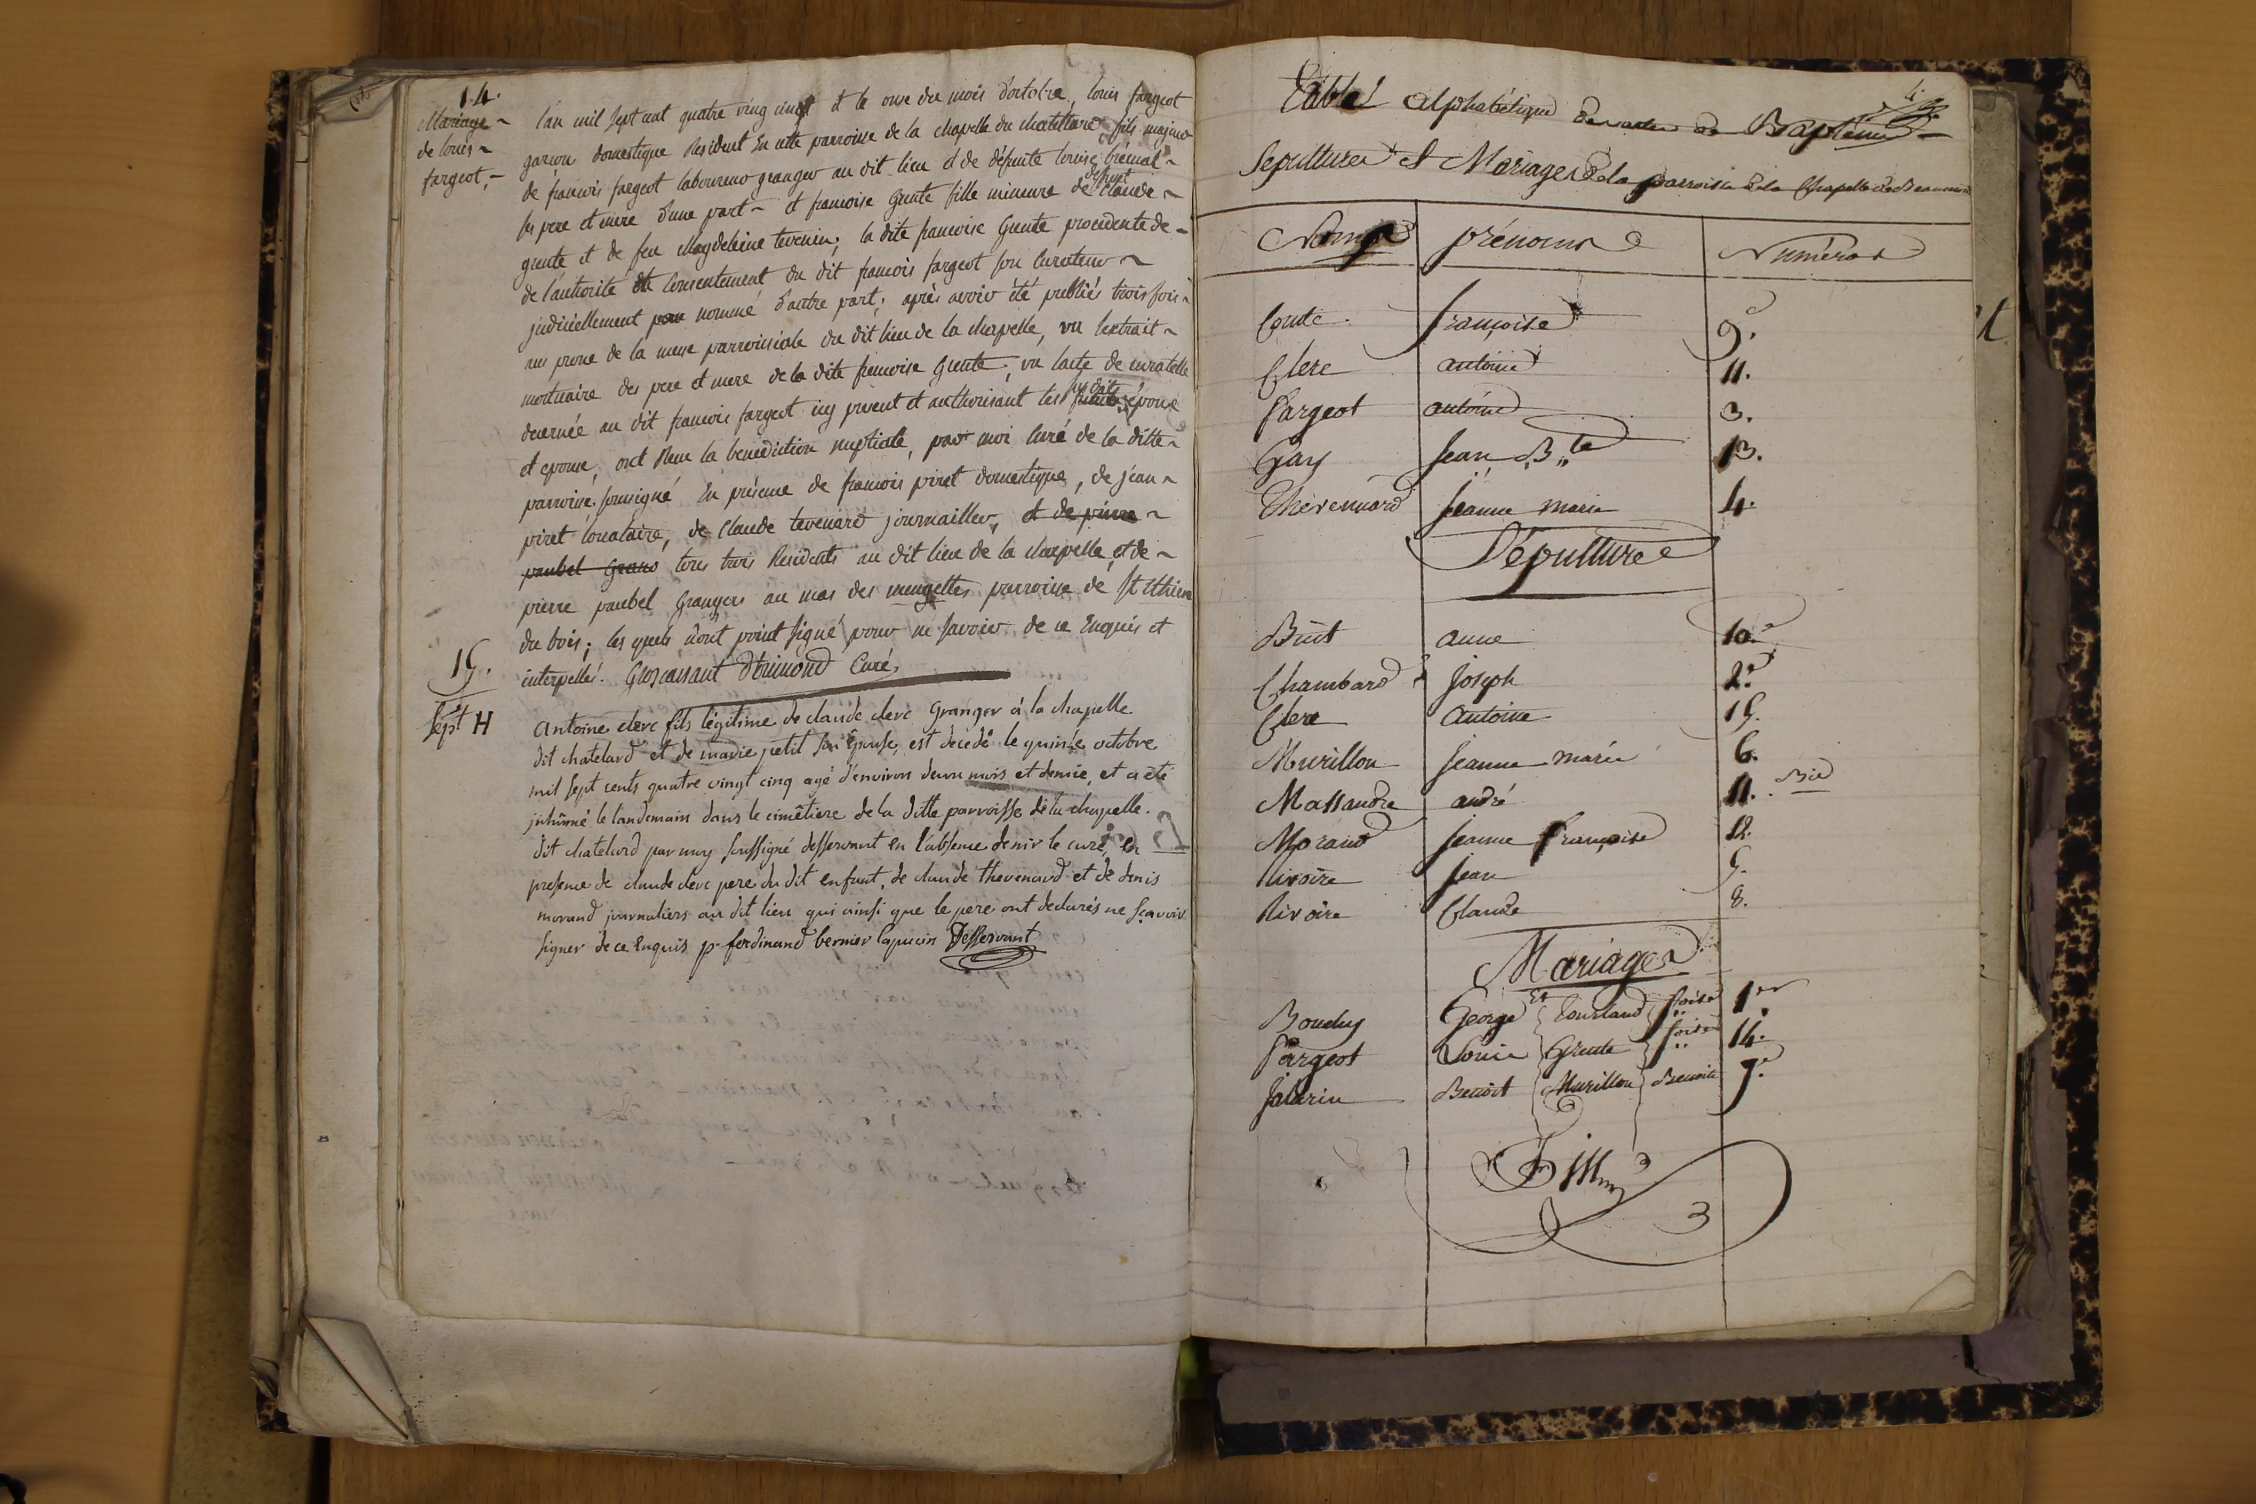 14.
Mariage
de louis
fargeot.
l'an mil sept cent quatre ving cinq et le onze du mois d'octobre, louis fargeot
garçon domestique Resident En cette parroisse de la chapelle du chatellard fils majeur
de francois fargeot laboureur granger au dit lieu et de défunte louise
ses pere et mere d'une part et francoise Grute fille mineure de défunt claude
grute et de feu Magdeleine tevenin; la dite francoise Grute procedente de
de l'authorité et Consentement du dit francois fargeot son curateur
judiciellement nommé d'autre part; après avoir été publiés trois fois
au prone de la messe parroissiale du dit lieu de la chapelle, vu l'extrait
mortuaire des pere et mere de la dite francoise Grute, vu l'acte de curatelle
decernée au dit francois fargeot icy present et authorisant les susdits époux
et epouse, ont Recu la benediction nuptiale, par moi curé de la ditte
parroisse soussigné En présence de francois piret domestique, de jean
piret locataire, de Claude tevenard journaillier, et de pierre
paubel Grans tous trois Residents au dit lieu de la chapelle et de
pierre paubel Grangers au mas des mengettes parroisse de St
du bois; les quels n'ont point signé pour ne savoir de ce Enquis et
interpellés. Groscassant Dorimond Curé
15.
Sept H
Antoine clerc fils légitime de claude clerc Granger à la chapelle
dit chatelard et de marie petit son Epouse, est décedé le quinze octobre
mil sept cents quatre vingt cinq agé d'environ deux mois et demie, et a été
inhumé le landemain dans le cimêtiere de la ditte parroisse de la chapelle
dit chatelard par moy soussigné desservant en l'absence de mr le curé, en
presence de claude clerc pere du dit enfant, de claude thevenard et de denis
morand journaliers au dit lieu qui ainsi que le pere ont declarés ne sçavoir
signer de ce Enquis p. ferdinand bernier Capucin Desservant
Table alphabétique des actes de Baptêmes
Sepultures et Mariages de la parroisse de la Chapelle
Noms prénoms Numéros
françoise 9.
Clerc antoine 11.
Fargeot antoine 3.
Gay Jean B.te 13.
Thevennard Jeanne marie 4.
Sépulture
Buit anne 10.
Chambard Joseph 2.
Clerc Antoine 15.
Murillon Jeanne marie 6.
Massandre andré 11. Bis
Morand Jeanne françoise 12.
Rivoire Jean 5.
Rivoire Claude 8.
Mariages
Bouchy George Et Tourland foise 1er
Fargeot Louis Grute foise 14.
Jalarin Benoit Murillon Benoite 7.